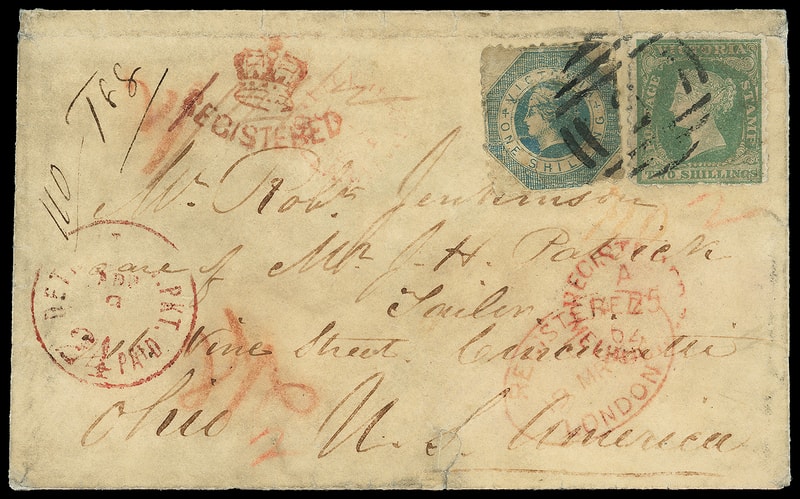 110
168
REGISTERED
VICTORIA
ONE SHILLING
VICTORIA
POSTAGE STAMP
TWO SHILLINGS
Mr. Robt. Jenkinson
care of Mr J. H. Patrick
Tailor
Vine Street. Cincinnatti
Ohio U. S. America
DET PKT.
APR
PAID
REGISTERED
A
FE 25
64
REGISTERED
MR
LONDON
2